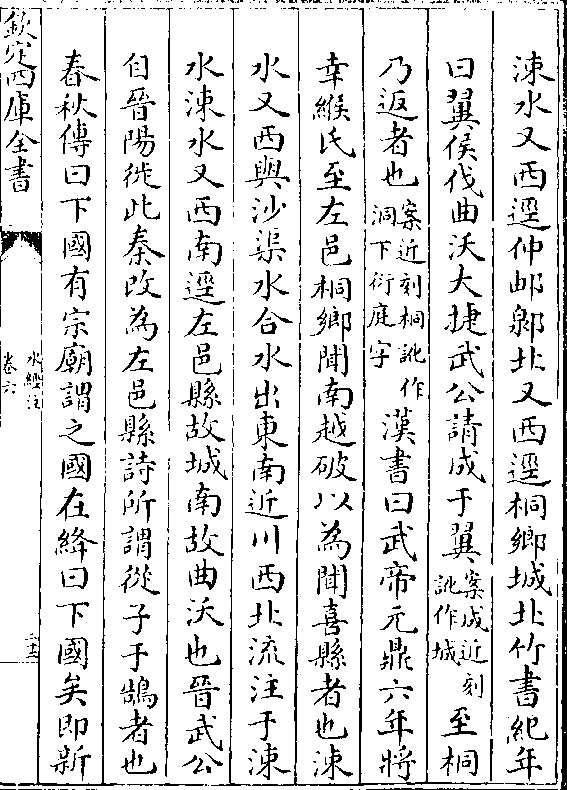 涑水又西逕仲郵郭北又西逕桐鄉城北竹書紀年
曰翼侯伐曲沃大捷武公請成于翼案成近刻訛作城至桐
乃返者也案近刻桐訛作洞下衍庭字漢書曰武帝元鼎六年將
幸緱氏至左邑桐鄉聞南越破以為聞喜縣者也涑
水又西與沙渠水合水出東南近川西北流注于涑
水涑水又西南逕左邑縣故城南故曲沃也晉武公
自晉陽徙此秦改為左邑縣詩所謂從子于鵠者也
春秋傳曰下國有宗廟謂之國在絳曰下國矣即新
欽定四庫全書
水經注
卷六